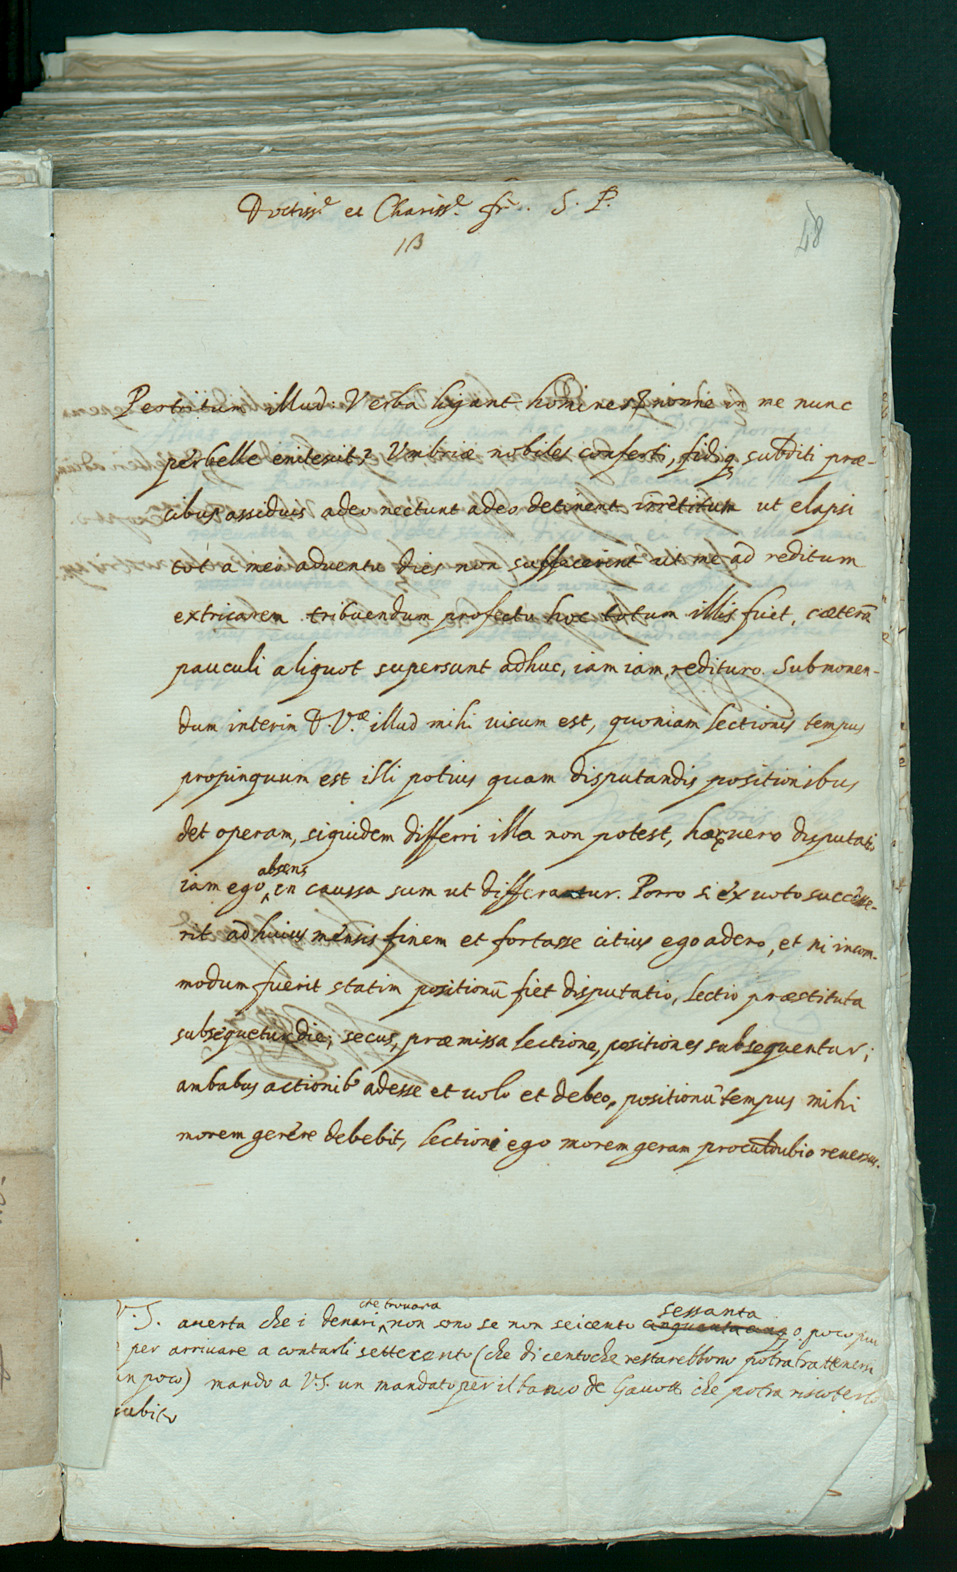 Doctiss.e et Chariss.e fr. S. P.
113
48
Pertritum illud: Verba ligant homines, nonne in me nunc
perbelle enitescit? Umbriæ nobiles conferti, fidiq subditi præ-
cibus assiduis adeo nectunt adeo detinent irretitum ut elapsi
tot à meo adventu dies non suffecerint ut me ad reditum
extricarem tribuendum profecto hoc totum illis fuet, cæterũ
pauculi aliquot supersunt adhuc, iam iam redituro. Submonen-
dum interim D. V.æ illud mihi uisum est, quoniam lectionis tempus
propinquum est illi potius quam disputandis positionibus
det operam, siquidem differri illa non potest, hæc uero disputatio
iam ego absens in caussa sum ut differatur. Porro si ex uoto successe-
rit ad huius mensis finem et fortasse citius ego adero, et ni incom-
modum fuerit statim positionũ fiet disputatio, lectio præstituta
subsequetur die; secus, præmissa lectione, positiones subsequentur;
ambabus actionib. adesse et uolo et debeo, positionũ tempus mihi
morem gerere debebit, lectioni ego morem geram proculdubio reuersus.
V. S. auerta che i denari che trouara non sono se non seicento sessanta o poco piu
per arriuare a contarli settecento (che di cento che restarebbono potra trattenersi
un poco) mando a V.S. un mandato per il banco de Gauotti che potra riscoterlo
subito